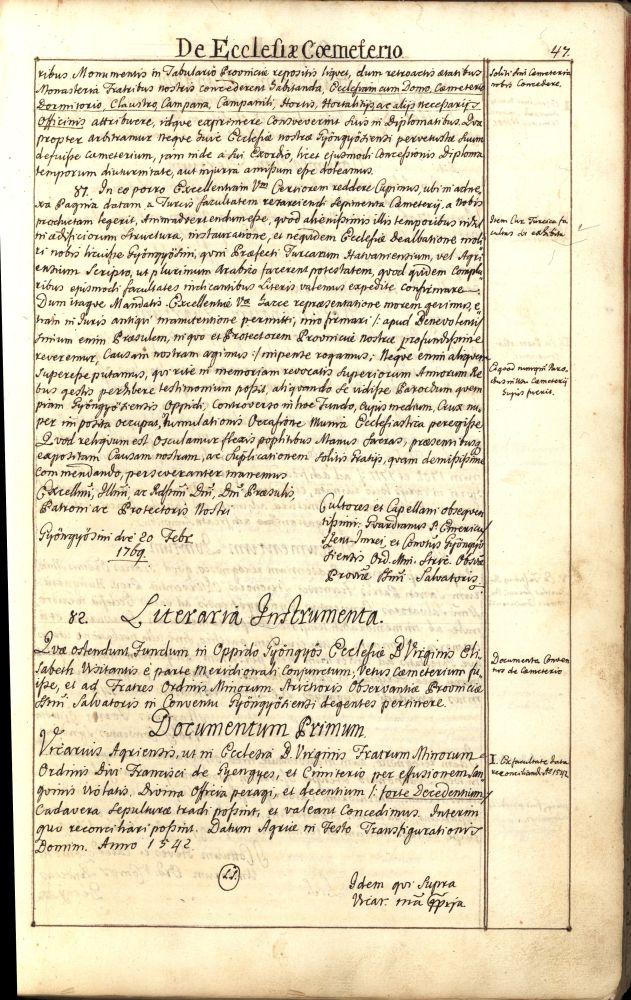 De Ecclesiæ Cœmeterio
47.
ribus Monumentis in Tabulario Provinciæ repositis liquet, dum retroactis ætatibus
Monasteria Fratibus nostris concederent habitanda, Ecclesiam cum Domo, Cæmeterio
Dormitorio, Claustro, Campana, Campanili, Hortis, Hortalitijs, ac alijs necessarijs
Officinis attribuere, idque exprimere consveverint suis in Diplomatibus. Qua
propter arbitramur neque huic Ecclesiæ nostræ Gyöngyösiensi pervetustæ suum
defuisse cæmeterium, jam inde a sui Exordio, licet ejusmodi Concessionis Diploma
temporum diuturnitate, aut injuria amissum esse doleamus.
Soliti sint Cæmeteria
nobis Concedere.
81. In eo porro Excellentiam Vram Certiorem reddere Cupimus, ubi in adne,
xa Pagina datam a Turcis facultatem restauriendi Sepimenta Cæmeterij, a Nobis
productam legerit, Animadvertendum esse, quod alienissimis illis temporibus nihil
in ædificiorum structura, instauratione, et nequidem Ecclesiæ dealbatione moli
ri nobis licuisse Gyöngyösini, quin Præfecti Turcarum Hatvaniensium, vel Agri
ensium Scripto, ut plurimum Arabico facerent potestatem, quod quidem Complu
ribus ejusmodi facultates indicantibus Literis valemus expedite confirmare.
Item Cur Turcica fa
cultas sit exhibita
Dum itaque Mandatis Excellentiæ Væ hacce repræsentatione morem gerimus, e,
tiam in Juris antiqui manutentione permitti, imo firmari /: apud Benevolenti
simum enim Præsulem, in quo et Protectorem Provinciæ nostræ profundissime
reveremur, Causam nostram agimus :/ impense rogamus; Neque enim aliquem
superesse putamus, qui rite in memoriam revocatis Superiorum Annorum Re
bus gestis perhibere testimonium possit, aliquando se vidisse Parochum quem
piam Gyöngyösiensis Oppidi, Controverso in hoc Fundo, Cujus medium, Crux nu,
per imposita occupat, tumulationis Occasione Munia Ecclesiastica peregisse.
Quod reliquum est Osculamur flexis poplitibus Manus Sacras, præsentibusq
expositam Causam nostram, ac Suplicationem solitis Gratijs, quam demississime
Commendando, perseveranter manemus
Et quod nunquam Paro
chus in usu Cæmeterij
hujus fuerit.
Excellmi, Illmi, ac Rdssmi Dni, Dni Præsulis,
Patroni ac Protectoris Nostri
Gyöngyösini die 20 Febr.
1769.
Cultores et Capellani obsequen
tissimi. Guardianus P. Emericus
Szent-Imrei, et Convtus Gyöngyö
siensis Ord. Min. Stric. Obser
Provciæ Ssmi Salvatoris.
82. Literaria Instrumenta.
Quæ ostendunt Fundum in Oppido Gyöngyös Ecclesiæ B. Virginis Eli
sabeth Visitantis é parte Meridionali Conjunctum, Vetus Cæmeterium fu,
isse, et ad Fratres Ordinis Minorum Strictioris Observantiæ Provinciæ
Ssmi Salvatoris in Conventu Gyöngyösiensi degentes pertinere.
Documenta Conven
tus de Cæmeterio
Documentum Primum.
Vicarius Agriensis, ut in Ecclesia B. Virginis Fratrum Minorum
Ordinis Divi Francisci de Gyengyes, et Cimiterio per effusionem san,
gvinis Violatis, Divina Officia peragi, et decennium /: forte Decedennium
Cadavera Sepulturæ tradi possint, et valeant Concedimus. Interim
quo reconciliari possint. Datum Agriæ in Festo Transfigurationis
Domini. Anno 1542.
I. De facultate data
reconciliandi Ao 1542.
L.S.
Idem qui supra
Vicar. ma ppria